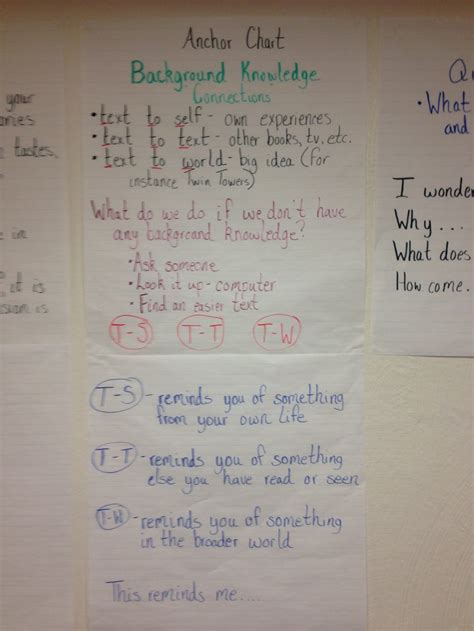 your
tastes,
e in
it is
Anchor Chart
Background Knowledge
Connections
• text to self - own experiences
• text to text - other books, tv, etc.
• text to world - big idea (for
instance Twin Towers)
What do we do if we don't have
any background knowledge?
• Ask someone
• Look it up - computer
• Find an easier text
T-S T-T T-W
T-S - reminds you of something
from your own life
T-T - reminds you of something
else you have read or seen
T-W - reminds you of something
in the broader world
This reminds me....
• What
and
I wonder
Why...
What does
How come.